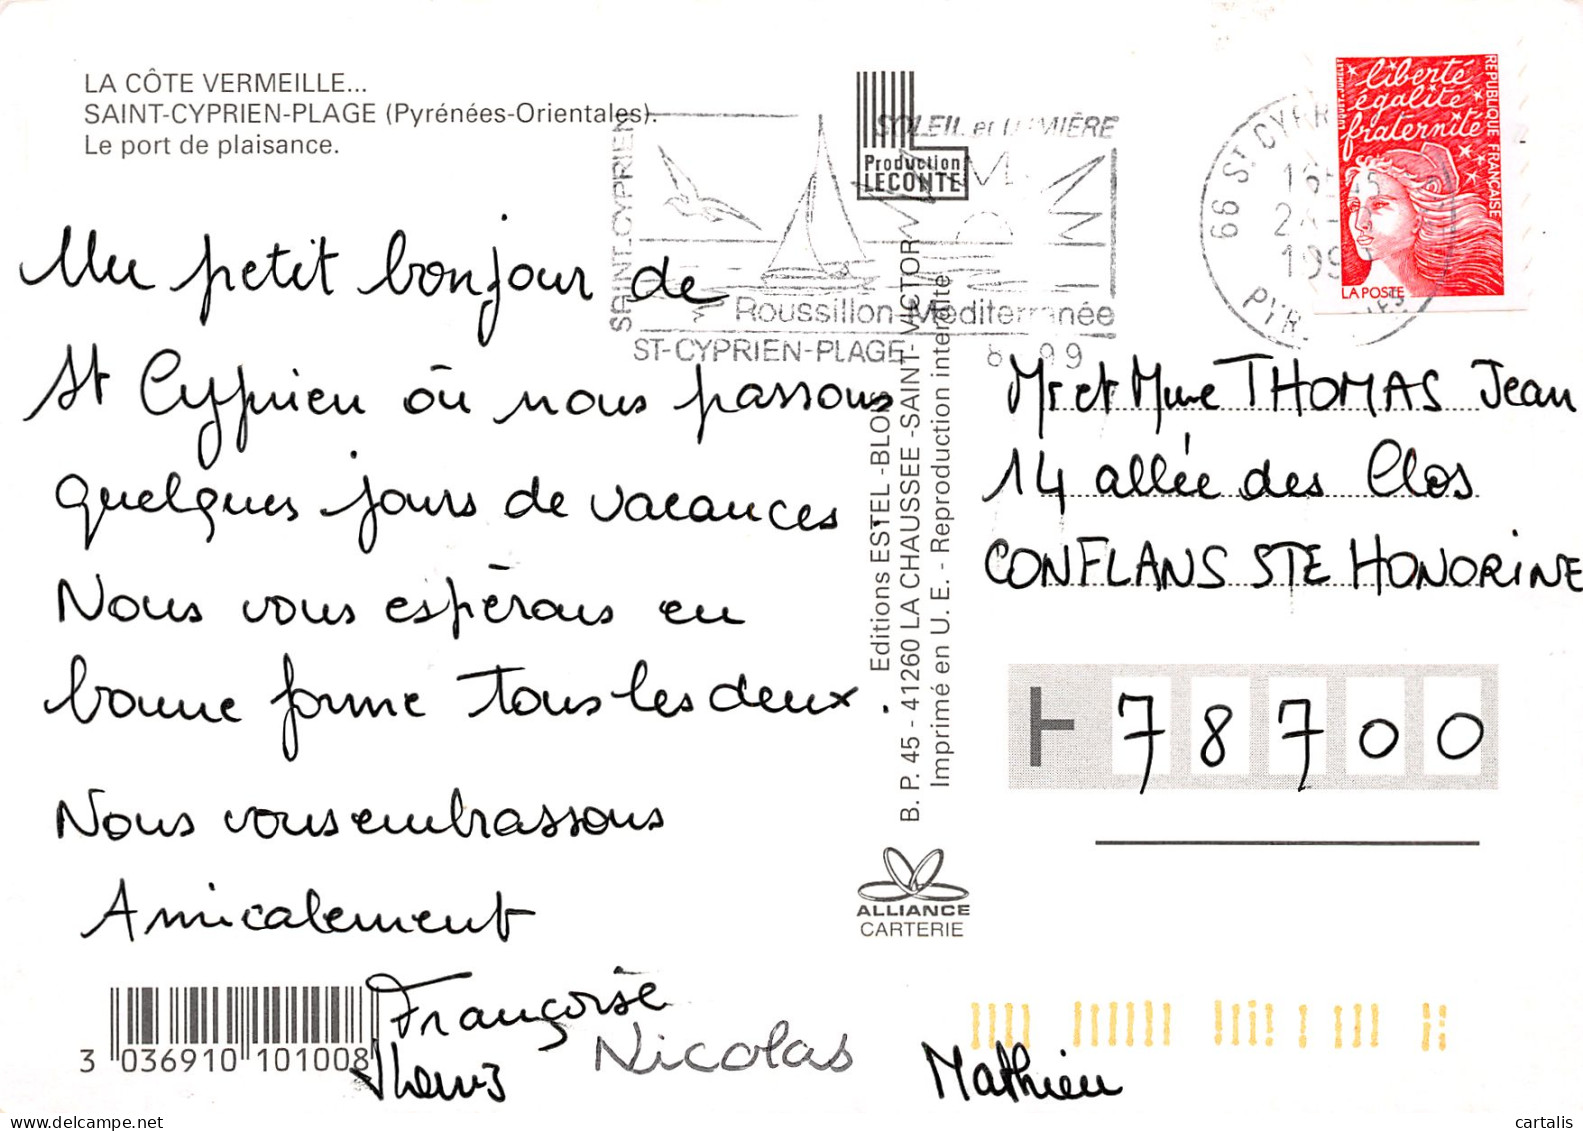 LA CÔTE VERMEILLE...
SAINT-CYPRIEN-PLAGE (Pyrénées-Orientales).
Le port de plaisance.
Un petit bonjour de
St Cyprien où nous passons
quelques jours de vacances
Nous vous espérons en
bonne forme tous les deux.
Nous vous embrassons
Amicalement
Françoise
Nicolas
Mathieu
3 036910 101008
SAINT-CYPRIEN
SOLEIL et LUMIÈRE
Roussillon-Méditerranée
ST-CYPRIEN-PLAGE
Production
LECONTE
Editions ESTEL -BLOIS
B. P. 45 - 41260 LA CHAUSSEE -SAINT-VICTOR
Imprimé en U. E. - Reproduction interdite
ALLIANCE
CARTERIE
66 ST CYPR
PYR.
liberté
égalité
fraternité
RÉPUBLIQUE FRANÇAISE
LA POSTE
Mr et Mme THOMAS Jean
14 allée des Clos
CONFLANS STE HONORINE
78700
delcampe.net
cartalis